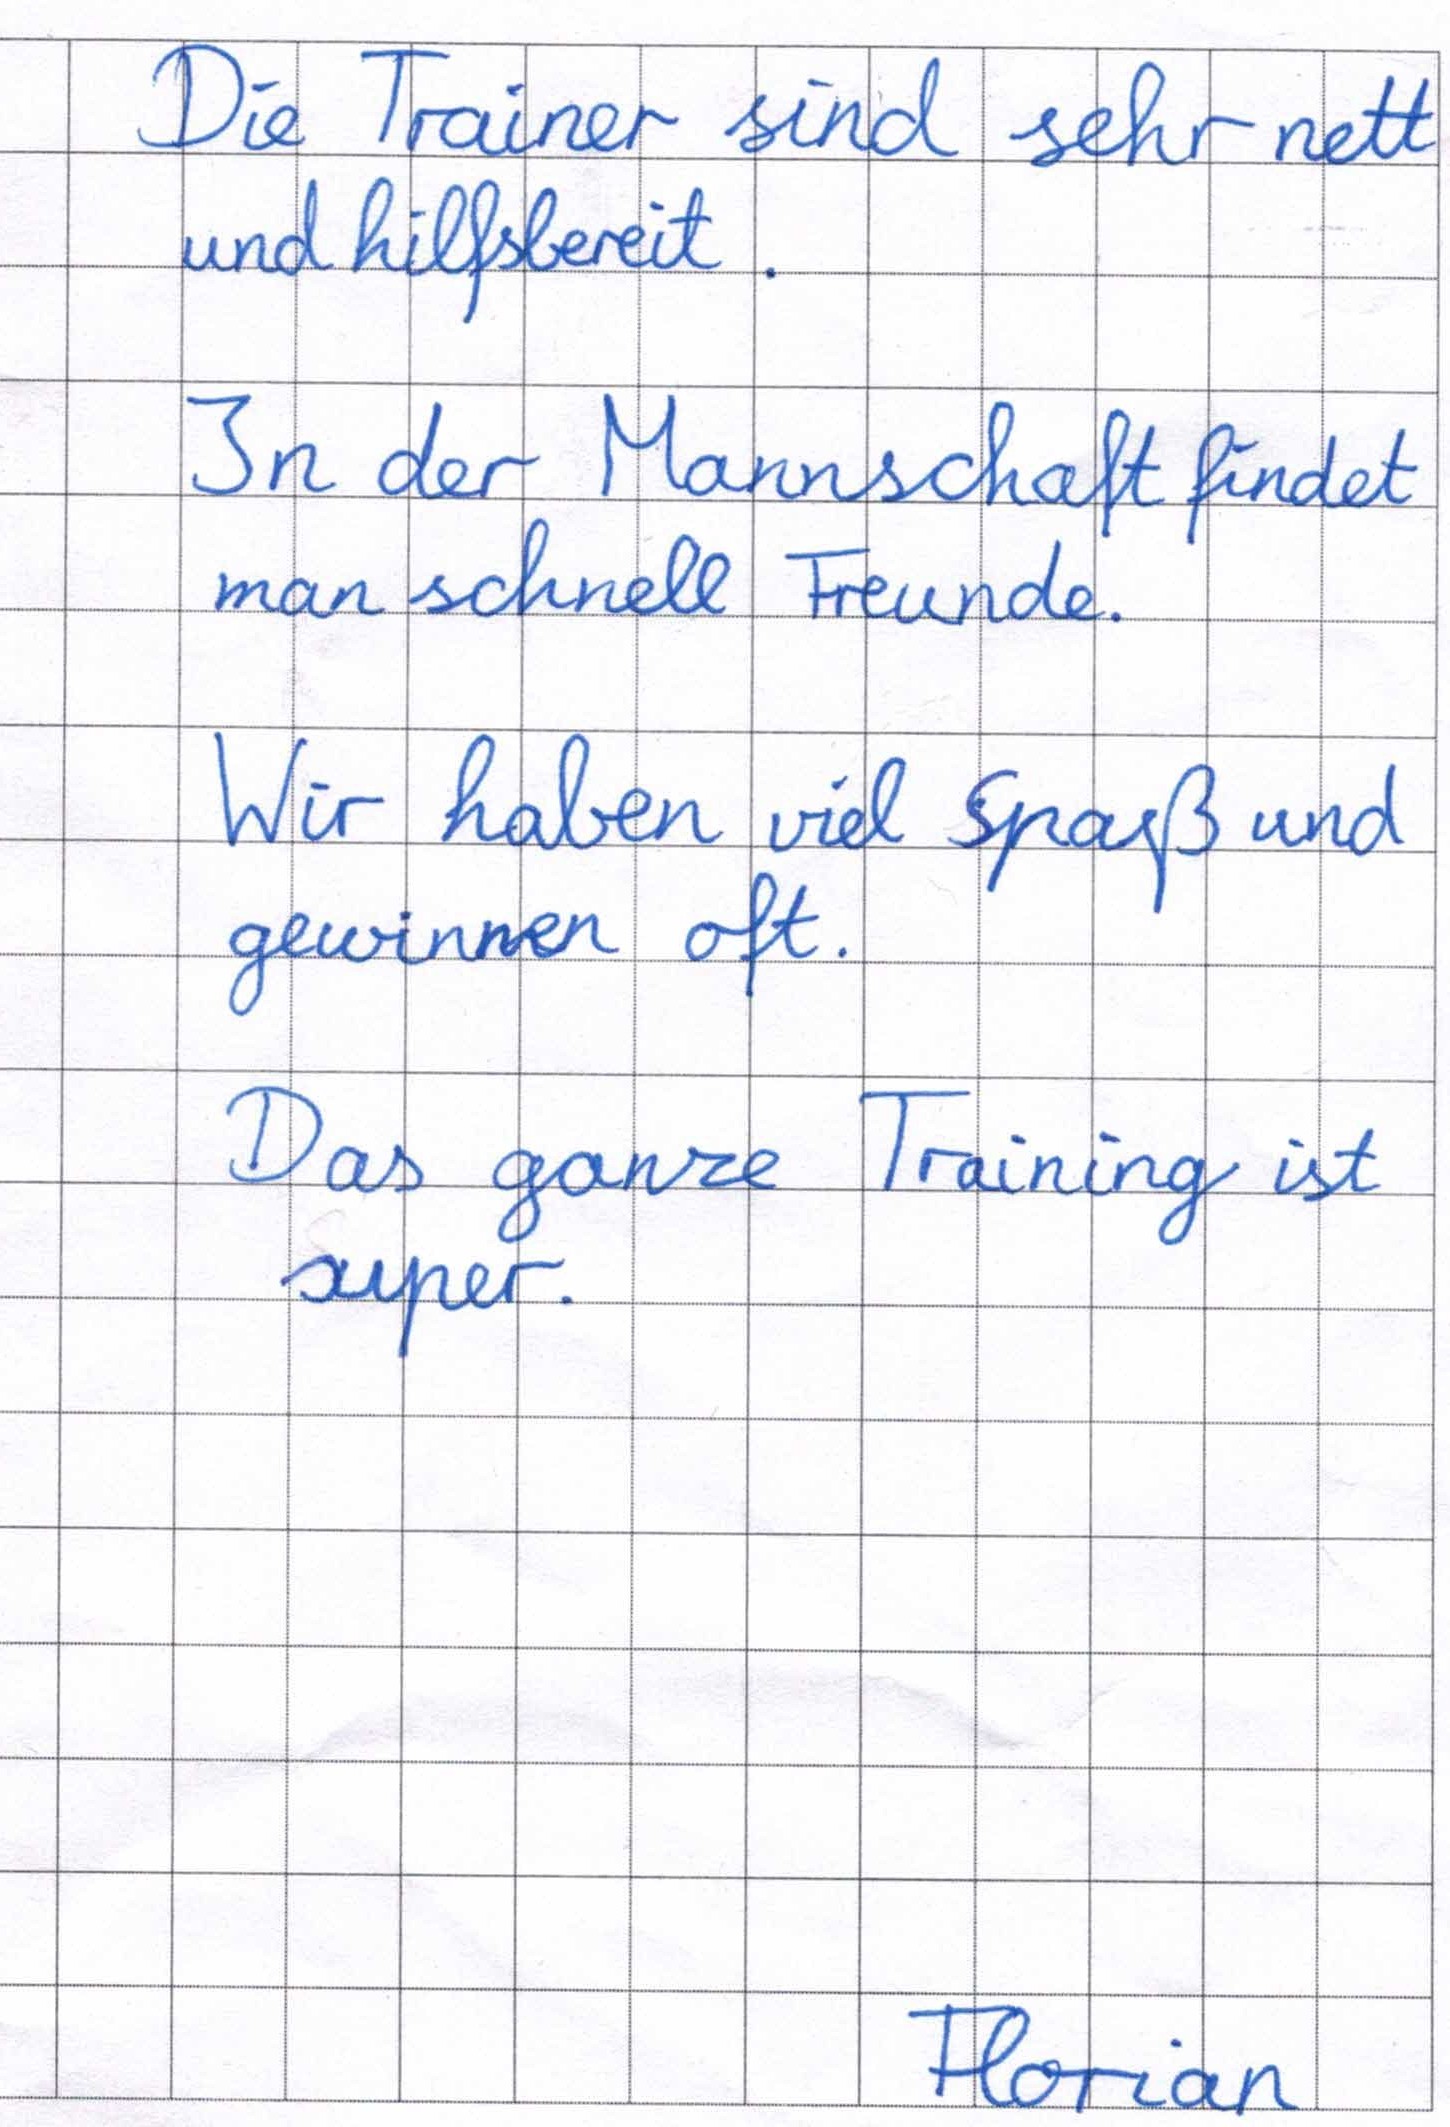 Die Trainer sind sehr nett
und hilfsbereit.
In der Mannschaft findet
man schnell Freunde.
Wir haben viel Spaß und
gewinnen oft.
Das ganze Training ist
super.
Florian